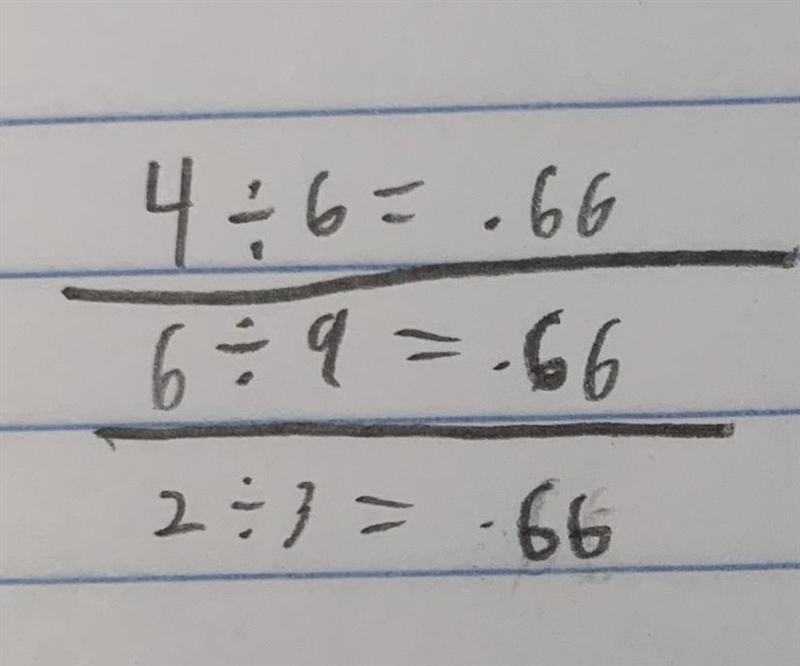 4 ÷ 6 = .66
6 ÷ 9 = .66
2 ÷ 3 = .66